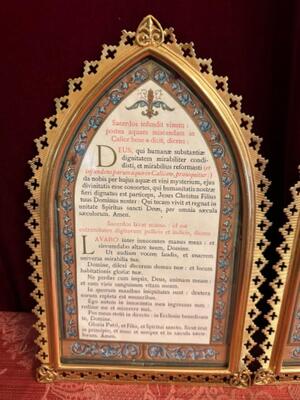 Sacerdos infundit vinum:
postea aquam miscendam in
Calice benedicit, dicens:
DEUS, qui humanæ substantiæ
dignitatem mirabiliter condi-
disti, et mirabilius reformasti: (et
infundens parum aquæ in Calicem, prosequitur:)
da nobis per hujus aquæ et vini mysterium, ejus
divinitatis esse consortes, qui humanitatis nostræ
fieri dignatus est particeps, Jesus Christus Filius
tuus Dominus noster: Qui tecum vivit et regnat in
unitate Spiritus sancti Deus, per omnia sæcula
sæculorum. Amen.
Sacerdos lavat manus:
extremitates digitorum pollicis et indicis, dicens
LAVABO inter innocentes manus meas: et
circumdabo altare tuum, Domine.
Ut audiam vocem laudis, et enarrem
universa mirabilia tua.
Domine, dilexi decorem domus tuæ: et locum
habitationis gloriæ tuæ.
Ne perdas cum impiis, Deus, animam meam: et
cum viris sanguinum vitam meam.
In quorum manibus iniquitates sunt: dextera
eorum repleta est muneribus.
Ego autem in innocentia mea ingressus sum:
redime me et miserere mei.
Pes meus stetit in directo: in Ecclesiis benedicam
te, Domine.
Gloria Patri, et Filio, et Spiritui sancto. Sicut erat
in principio, et nunc et semper et in sæcula sæcu-
lorum. Amen.